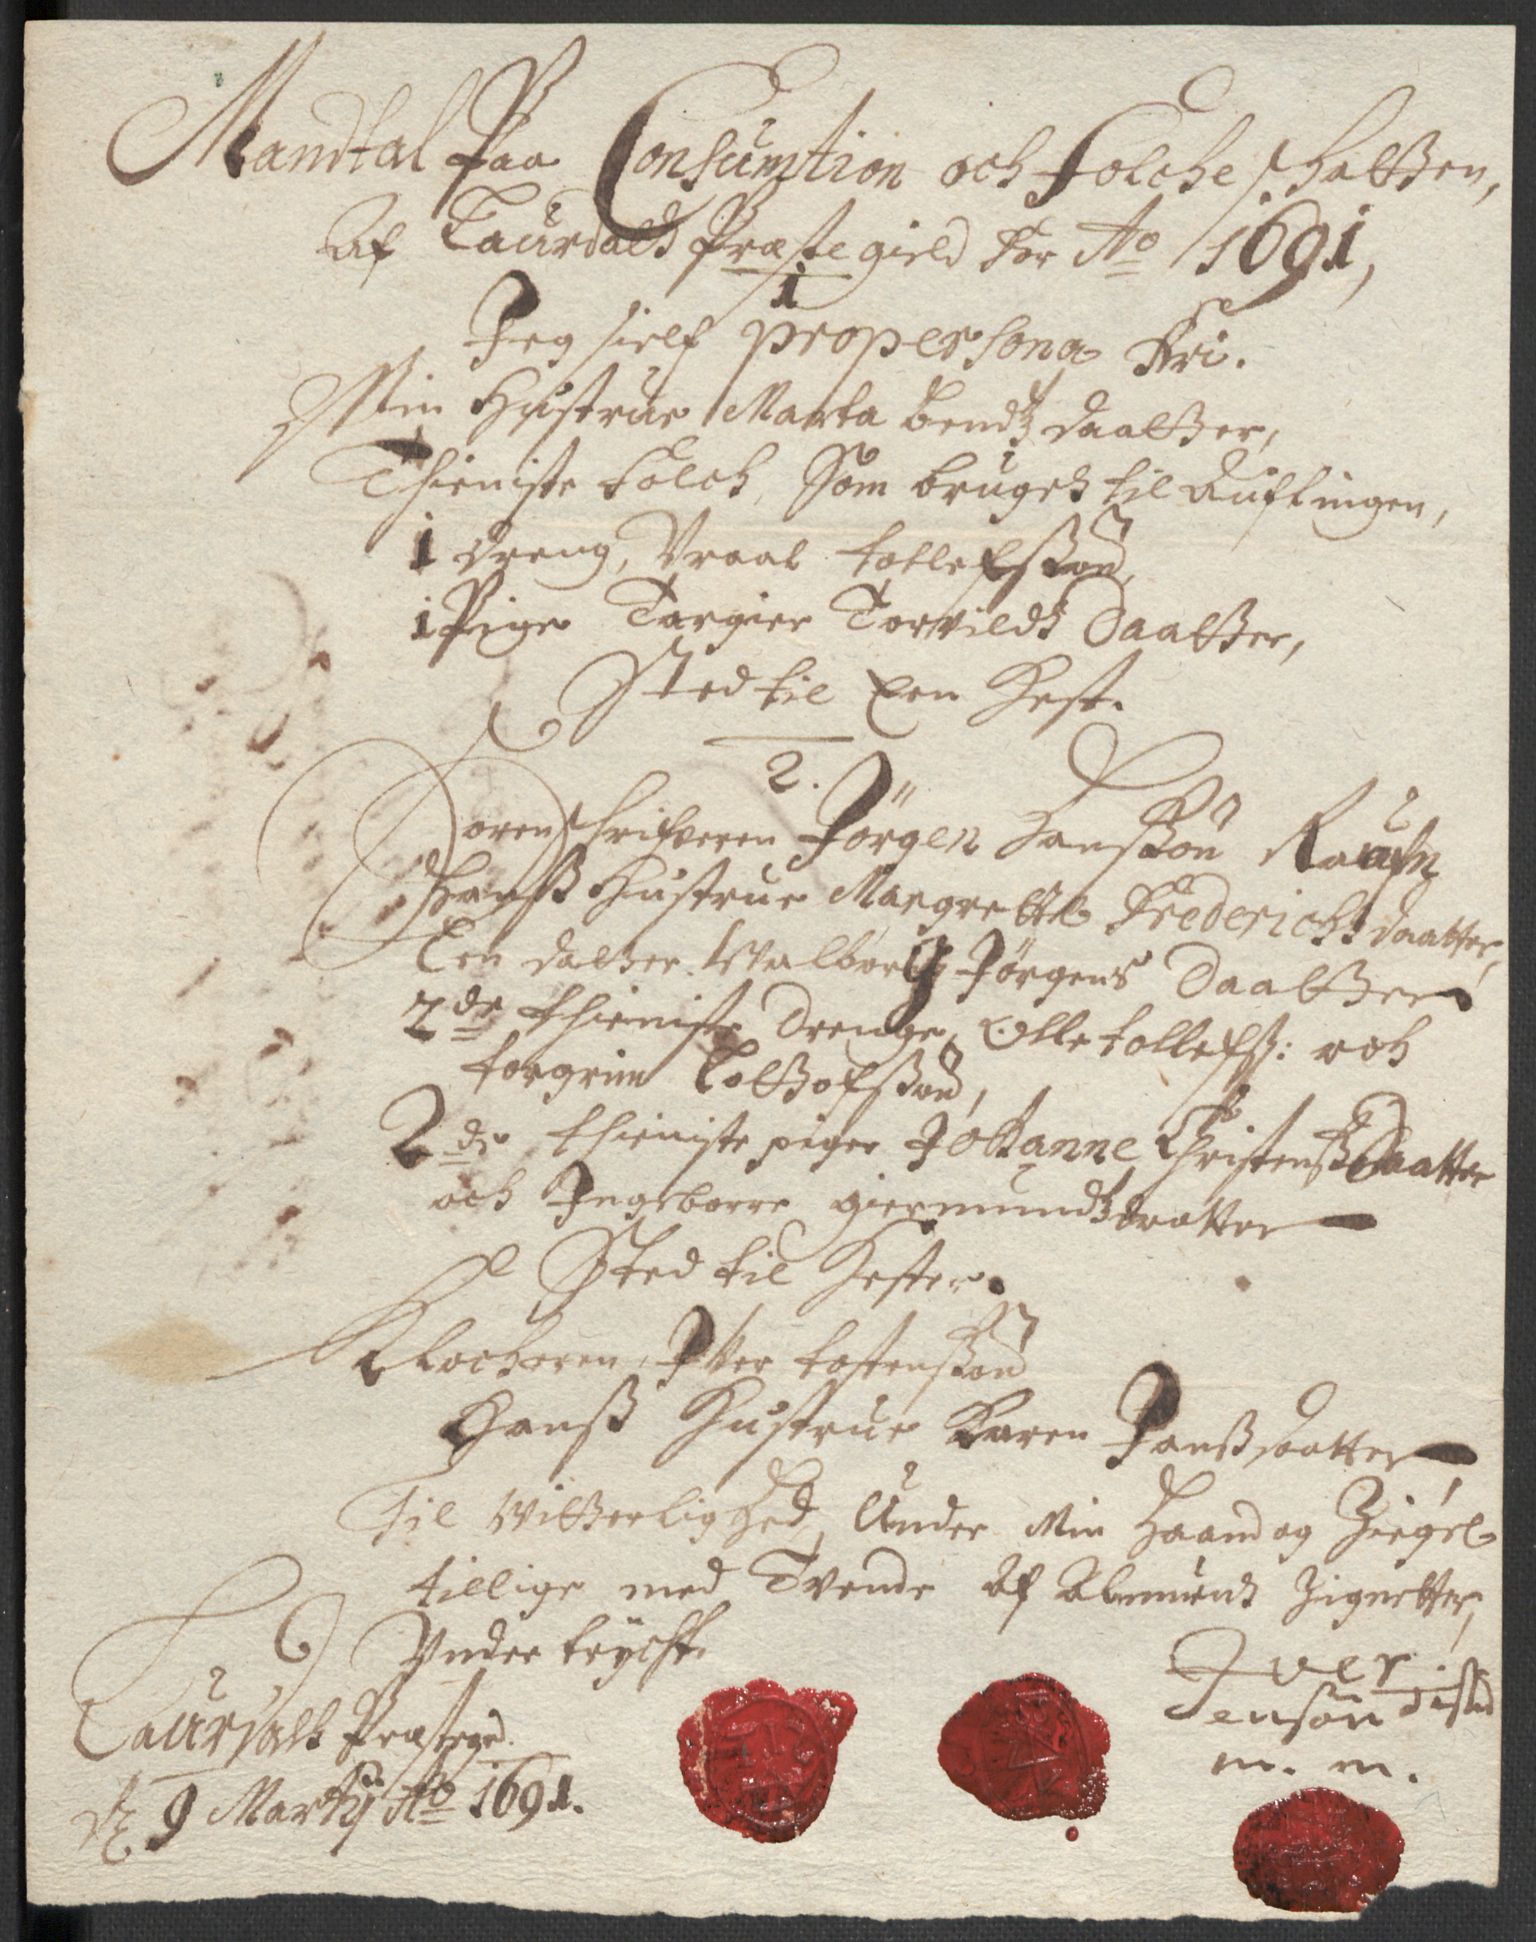 Mandtal Paa Consumtion och Folche schatten,
Af Laurdals Præstegield for Ao 1691,
1
Jeg sielf propersona fri.
Min Hustrue Marta Bendtz daatter,
Thieniste folch, Som bruges til Auflingen,
1 dreng, Vraal tollefssøn,
1 Pige Targier Torvildtz Daatter,
Sted til Een Hest.
2.
Sorenschrifveren Jörgen Hanssøn
Hanss Hustrue Margrette Friderichs daatter,
Een datter Walborg Jörgens Daatter
2de thieniste Drenge, Olle tollefss: och
torgrim Lottofssøn,
2de thieniste piger Johanne Christenss Daatter
och Ingeborre giermundtz datter
Sted til Hester.
Klocheren, Iver tostenssøn
Hanss Hustrue Karen Janss daatter
Til Witterlighed, Under Min Haand og Ziegel
tillige med Tvende Af Almuens Zignetter,
Under trycht.
Laurdals Præstegd.
dtz 9 Martij Ao 1691.
Iver
Jensøn
m. m.